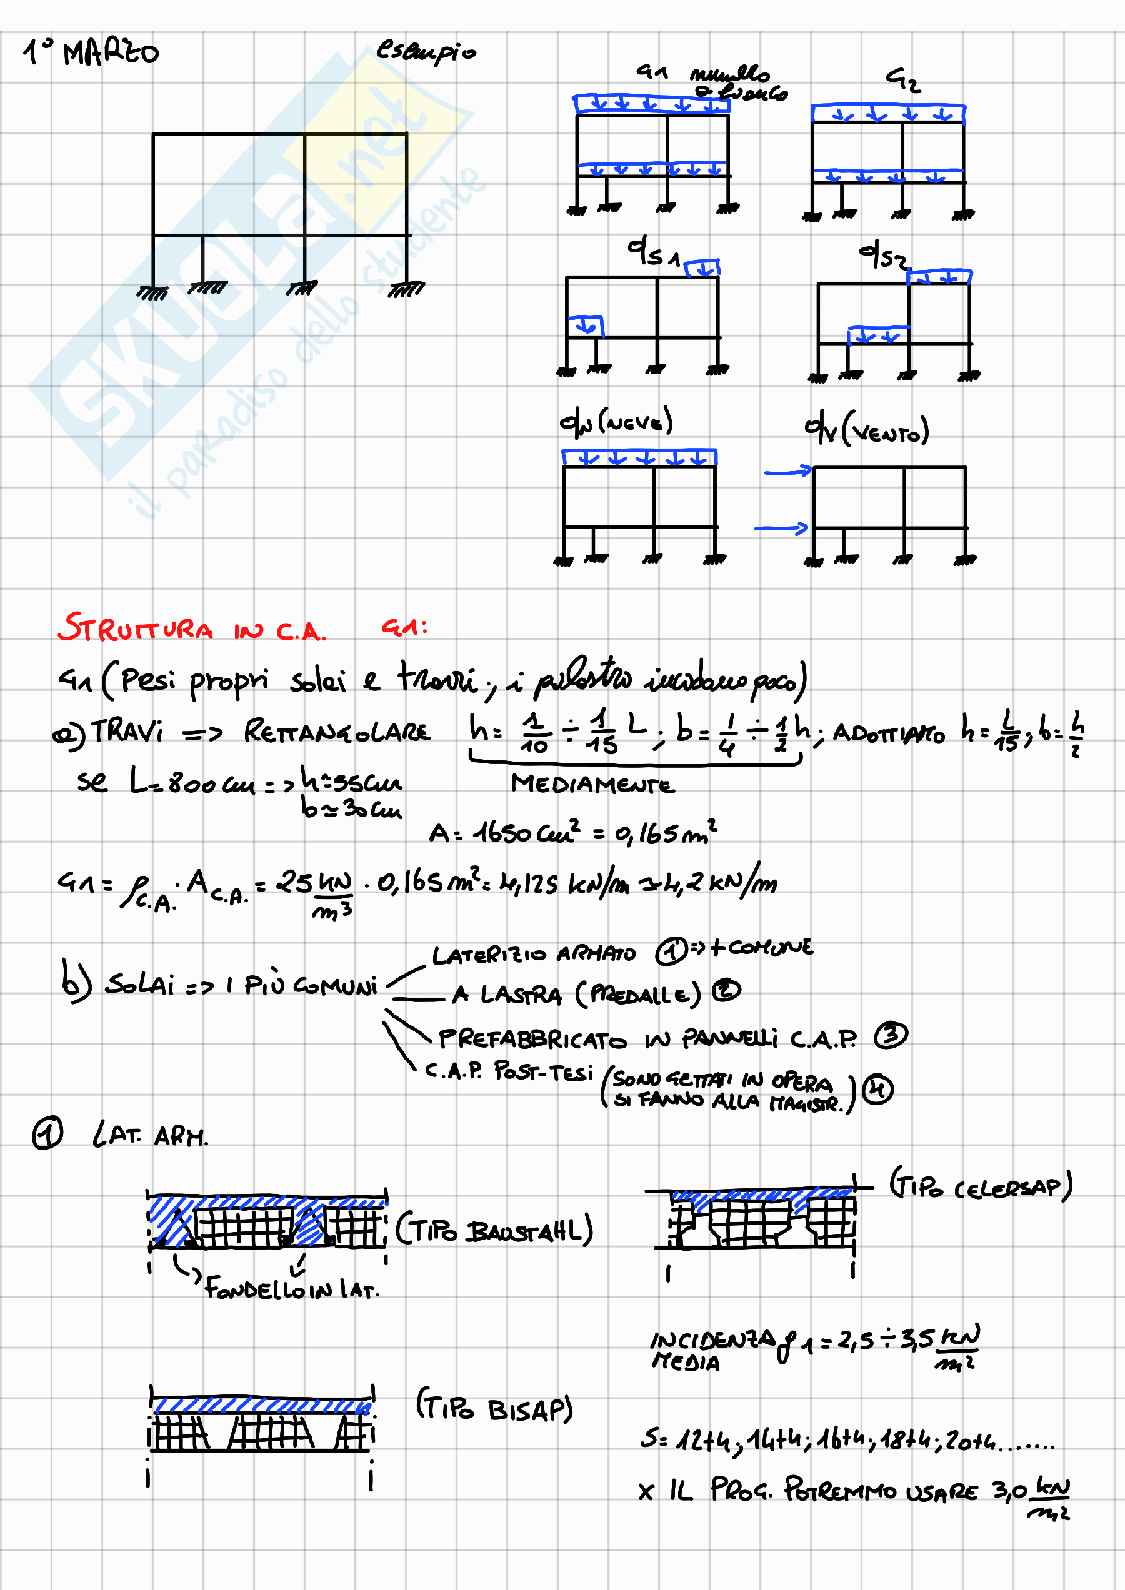 1° MARZO
esempio
G1 nunullo
o bianco
G2
qs1
qs2
qN (NEVE)
qV (VENTO)
SKUOLA.net
il paradiso dello studente
STRUTTURA IN C.A. G1:
G1 (Pesi propri solai e travi; i pilastri incidono poco)
a) TRAVI => RETTANGOLARE h = 1/10 ÷ 1/15 L ; b = 1/4 ÷ 1/2 h ; ADOTTIAMO h = L/15 ; b = h/2
MEDIAMENTE
se L = 800 cm => h ≃ 55 cm
b ≃ 30 cm
A = 1650 cm² = 0,165 m²
G1 = ρC.A. · AC.A. = 25 kN/m³ · 0,165 m² = 4,125 kN/m ≃ 4,2 kN/m
b) SOLAI => I PIÙ COMUNI
LATERIZIO ARMATO ① => + COMUNE
A LASTRA (PREDALLE) ②
PREFABBRICATO IN PANNELLI C.A.P. ③
C.A.P. POST-TESI (SONO GETTATI IN OPERA
SI FANNO ALLA MAGISTR.) ④
① LAT. ARM.
(TIPO BAUSTAHL)
FONDELLO IN LAT.
(TIPO CELERSAP)
INCIDENZA g1 = 2,5 ÷ 3,5 kN/m²
MEDIA
(TIPO BISAP)
S = 12+4 ; 14+4 ; 16+4 ; 18+4 ; 20+4 .......
x IL PROG. POTREMMO USARE 3,0 kN/m²